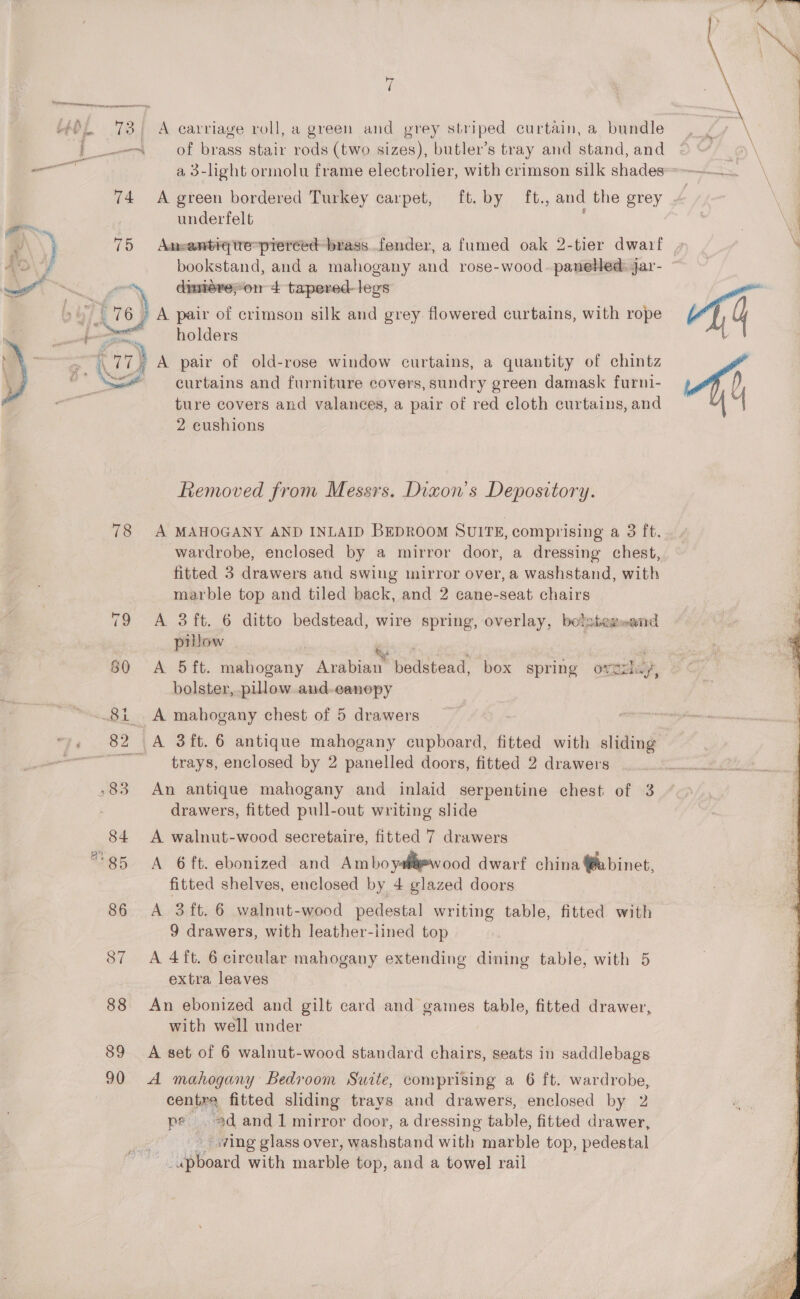 7
73 A carriage roll, a green and grey striped curtain, a bundle
of brass stair rods (two sizes), butler's tray and stand, and
a 3-light ormolu frame electrolier, with crimson silk shades
74 A green bordered Turkey carpet, ft. by ft., and the grey
underfelt
75 An antique pierced brass fender, a fumed oak 2-tier dwarf
bookstand, and a mahogany and rose-wood panelled jar-
dinière, on 4 tapered legs
76 A pair of crimson silk and grey flowered curtains, with rope
holders
77 A pair of old-rose window curtains, a quantity of chintz
curtains and furniture covers, sundry green damask furni-
ture covers and valances, a pair of red cloth curtains, and
2 cushions
Removed from Messrs. Dixon's Depository.
78 A MAHOGANY AND INLAID BEDROOM SUITE, comprising a 3 ft.
wardrobe, enclosed by a mirror door, a dressing chest,
fitted 3 drawers and swing mirror over, a washstand, with
marble top and tiled back, and 2 cane-seat chairs
79 A 3 ft. 6 ditto bedstead, wire spring, overlay, bolster and
pillow
80 A 5 ft. mahogany Arabian bedstead, box spring overlay,
bolster, pillow and canopy
81 A mahogany chest of 5 drawers
82 A 3 ft. 6 antique mahogany cupboard, fitted with sliding
trays, enclosed by 2 panelled doors, fitted 2 drawers
83 An antique mahogany and inlaid serpentine chest of 3
drawers, fitted pull-out writing slide
84 A walnut-wood secretaire, fitted 7 drawers
85 A 6 ft. ebonized and Amboyna-wood dwarf china cabinet,
fitted shelves, enclosed by 4 glazed doors
86 A 3 ft. 6 walnut-wood pedestal writing table, fitted with
9 drawers, with leather-lined top
87 A 4 ft. 6 circular mahogany extending dining table, with 5
extra leaves
88 An ebonized and gilt card and games table, fitted drawer,
with well under
89 A set of 6 walnut-wood standard chairs, seats in saddlebags
90 A mahogany Bedroom Suite, comprising a 6 ft. wardrobe,
centre fitted sliding trays and drawers, enclosed by 2
and 1 mirror door, a dressing table, fitted drawer,
glass over, washstand with marble top, pedestal
cupboard with marble top, and a towel rail